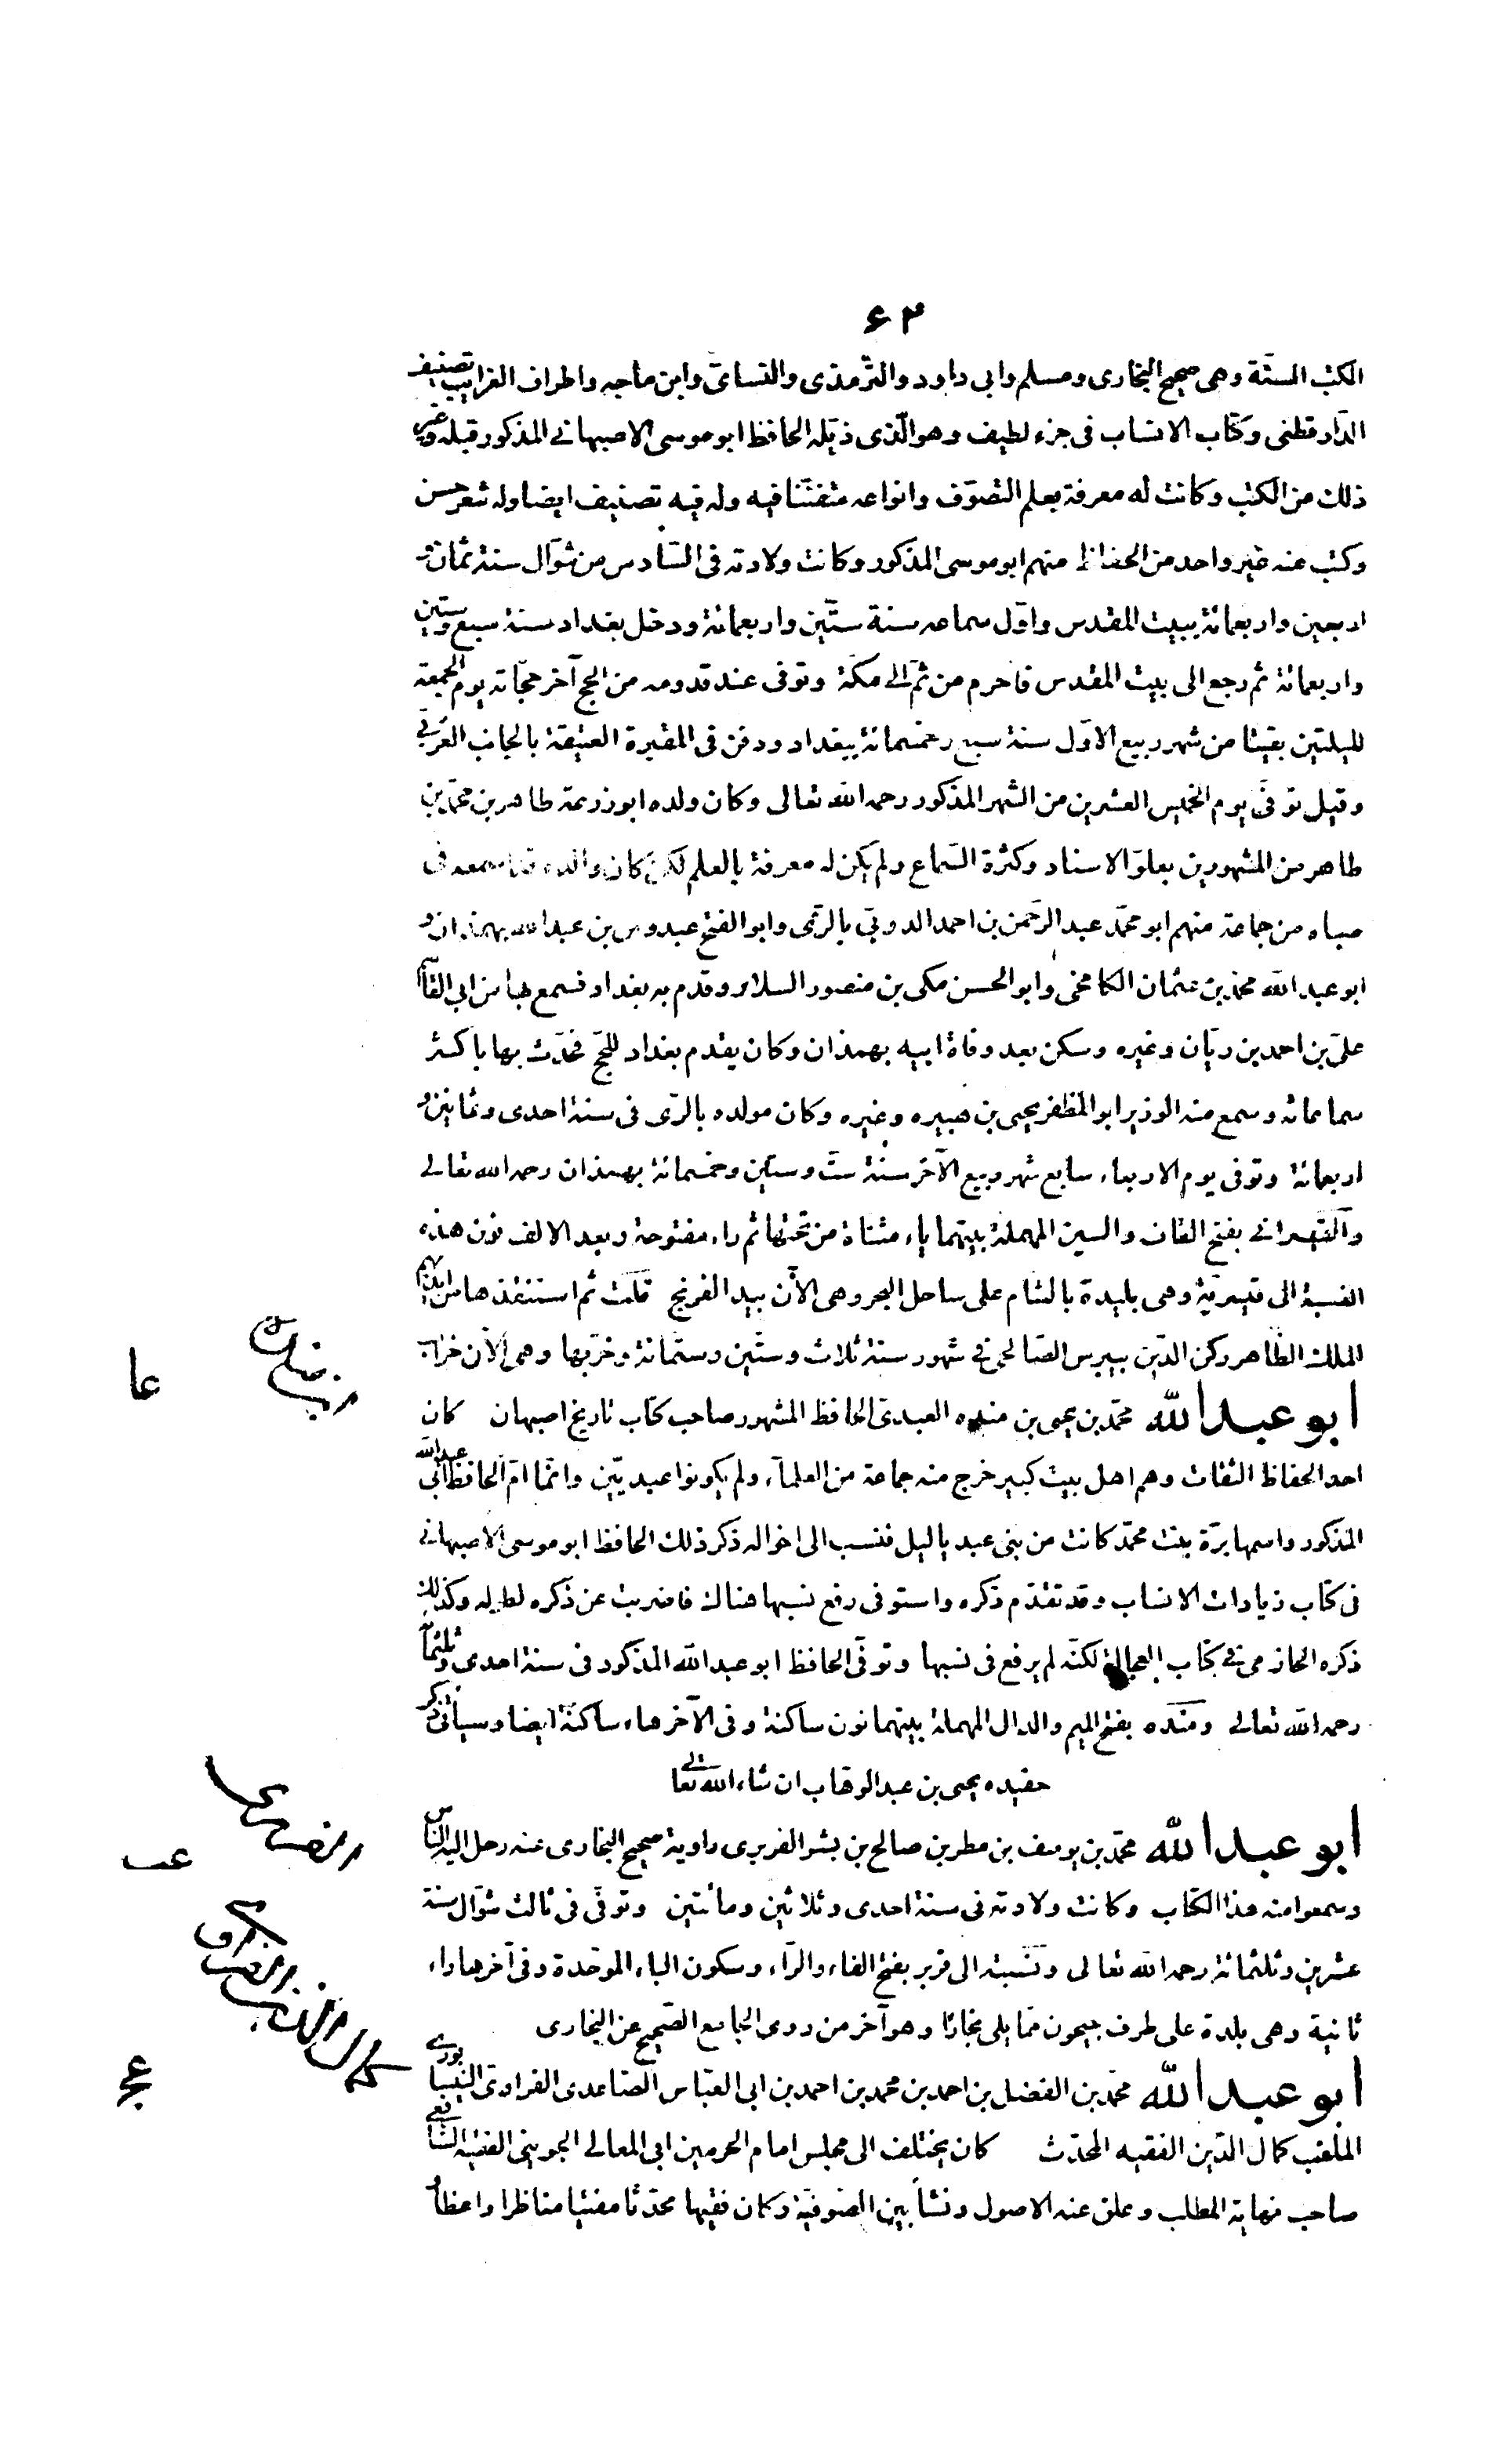 ٦٢
الكتب الستّة وهى صحيح البخارى ومسلم وابى داود والترّمذى والنسائى وابن ماجه واطراف الغرايب تصنيف
الدّار قطنى وكتاب الانساب فى جزء لطيف وهو الّذى ذيّله الحافظ ابو موسى الاصبهانى المذكور قبله وغير
ذلك من الكتب وكانت له معرفة بعلم التصوّف وانواعه متفننّا فيه وله فيه تصنيف ايضا وله شعر حسن
وكتب عنه غير واحد من الحفاظ منهم ابو موسى المذكور وكانت ولادته فى السّادس من شوّال سنة ثمان و
اربعين واربعمائة ببيت المقدس واوّل سماعه سنة ستّين واربعمائة ودخل بغداد سنة سبع وستين
واربعمائة ثم رجع الى بيت المقدس فاحرم من ثمّ الى مكّة وتوفى عند قدومه من الحج آخر حجّاته يوم الجمعة
لليلتين بقيتا من شهر ربيع الاوّل سنة سبع وخمسمائة ببغداد ودفن فى المقبرة العتيقة بالجانب الغربىّ
وقيل توفّى يوم الخميس العشرين من الشهر المذكور رحمه الله تعالى وكان ولده ابو زرعة طاهر بن محمّد بن
طاهر من المشهورين بعلوّ الاسناد وكثرة السّماع ولم يكن له معرفة بالعلم لكن كان والده قد سمعه فى
صباه من جماعة منهم ابو محمّد عبد الرّحمن بن احمد الدونىّ بالرّى وابو الفتح عبدوس بن عبد الله بهمذان و
ابو عبد الله محمّد بن عثمان الكامخى وابو الحسن مكى بن منصور السلار وقدم به بغداد فسمع بها من ابى القاسم
علىّ بن احمد بن ريّان وغيره وسكن بعد وفاة ابيه بهمذان وكان يقدم بغداد للحّج فحدّث بها باكثر
سماعاته وسمع منه الوزير ابو المظفر يحيى بن هبيره وغيره وكان مولده بالرّى فى سنة احدى وثمانين و
اربعمائة وتوفى يوم الاربعاء سابع شهر ربيع الآخر سنة ستّ وستّين وخمسمائة بهمذان رحمه الله تعالى
والقيسرانى بفتح القاف والسين المهملة بينهما ياء مثناة من تحتها ثم راء مفتوحة وبعد الالف نون هذه
النسبة الى قيسريّة وهى بليدة بالشام على ساحل البحر وهى الآن بيد الفرنج قلت ثم استنقذها من ايديهم
الملك الظّاهر ركن الدّين بيبرس الصّالحى فى شهور سنة ثلاث وستّين وستمائة وخرّبها وهى الآن خراب
ابو عبد الله محمّد بن يحيى بن منده العبدىّ الحافظ المشهور صاحب كتاب تاريخ اصبهان كان
احد الحفاظ الثقات وهم اهل بيت كبير خرج منه جماعة من العلمآء ولم يكونوا عبديّين وانّما امّ الحافظ ابى عبد الله
المذكور واسمها برّة بنت محمّد كانت من بنى عبد ياليل فنسب الى اخواله ذكر ذلك الحافظ ابو موسى الاصبهانى
فى كتاب زيادات الانساب وقد تقدّم ذكره واستوفى رفع نسبها هناك فاضربت عن ذكره لطوله وكذلك
ذكره الحازمى فى كتاب العجالة لكنّه لم يرفع فى نسبها وتوفّى الحافظ ابو عبد الله المذكور فى سنة احدى وثلثمائة
رحمه الله تعالى ومنده بفتح الميم والدال المهملة بينهما نون ساكنة وفى الآخر هاء ساكنة ايضا وسياتى ذكر
حفيده يحيى بن عبد الوهّاب ان شاء الله تعالى
ابو عبد الله محمّد بن يوسف بن مطر بن صالح بن بشر الفربرى راوية صحيح البخارى عنه رحل اليه النّاس
وسمعوا منه هذا الكتاب وكانت ولادته فى سنة احدى وثلاثين ومائتين وتوفّى فى ثالث شوّال سنة
عشرين وثلثمائة رحمه الله تعالى ونسبته الى فربر بفتح الفاء والرّاء وسكون الباء الموحّدة وفى آخرها راء
ثانية وهى بلدة على طرف جيحون ممّا يلى بخارا وهو آخر من روى الجامع الصّحيح عن البخارى
ابو عبد الله محمّد بن الفضل بن احمد بن محمد بن احمد بن ابى العبّاس الصّاعدى الفراوىّ النيسابورى
الملقب كمال الدّين الفقيه المحدّث كان يختلف الى مجلس امام الحرمين ابى المعالى الجوينى الفقيه الشّافعى
صاحب نهاية المطلب وعلق عنه الاصول ونشأ بين الصّوفيّة وكان فقيها محدّثا مفتيا مناظرا واعظا